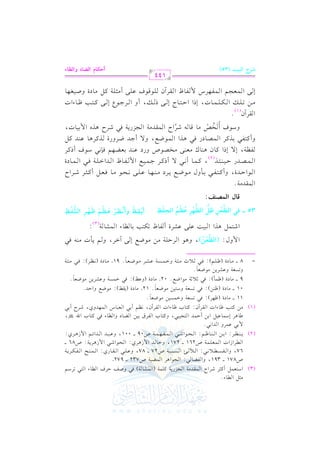 شرح البيت (٥٣)
أحكام الضاد والظاء
٤٤١
إلى المعجم المفهرس لألفاظ القرآن للوقوف على أمثلة كل مادة وصيغها
من تلك الكلمات، إذا احتاج إلى ذلك، أو الرجوع إلى كتب ظاءات
القرآن(١).
وسوف أُلَخِّصُ ما قاله شرّاح المقدمة الجزرية في شرح هذه الأبيات،
وأكتفي بذكر المصادر في هذا الموضع، ولا أجد ضرورة لذكرها عند كل
لفظة، إلا إذا كان هناك معنى مخصوص ورد عند بعضهم فإني سوف أذكر
المصدر حينئذ(٢)، كما أني لا أذكر جميع الألفاظ الداخلة في المادة
الواحدة، وأكتفي بأول موضع يرد منها على نحو ما فعل أكثر شراح
المقدمة.
قال المصنف:
٥٣ ـ في
اشتمل هذا البيت على عشرة ألفاظ تكتب بالظاء المشالة(٣):
الأول: (الظَّعْن)، وهو الرحلة من موضع إلى آخر، ولم يأت منه في
= ٨ ـ مادة (ظلم): في ثلاث مئة وخمسة عشر موضعاً. ١٩. مادة (نظر): في مئة
وتسعة وعشرين موضعاً.
٩ ـ مادة (ظمأ): في ثلاثة مواضع. ٢٠. مادة (وعظ): في خمسة وعشرين موضعاً.
١٠ ـ مادة (ظن): في تسعة وستين موضعاً. ٢١. مادة (يقظ): موضع واحد.
١١ ـ مادة (ظهر): في تسعة وخمسين موضعاً.
(١) من كتب ظاءات القرآن: كتاب ظاءات القرآن، نظم أبي العباس المهدوي، شرح أبي
طاهر إسماعيل ابن أحمد التجيبي، وكتاب الفرق بين الضاد والظاء في كتاب الله ﷿،
لأبي عمرو الداني.
(٢) ينظر: ابن الناظم: الحواشي المفهمة ص٩٠ ـ ١٠٠، وعبد الدائم الأزهري:
الطرازات المعلمة ص١٦٢ ـ ١٧٢، وخالد الأزهري: الحواشي الأزهرية: ص٦٨ ـ
٧٦، والقسطلاني: اللآلئ السنية ص٧٢ ـ ٧٨، وعلي القاري: المنح الفكرية
ص١٧٨ ـ ١٩٣، والفضالي: الجواهر المضية ص٢٣٧ ـ ٢٧٩.
(٣) استعمل أكثر شراح المقدمة الجزرية كلمة (المشالة) في وصف حرف الظاء التي ترسم
مثل الطاء.